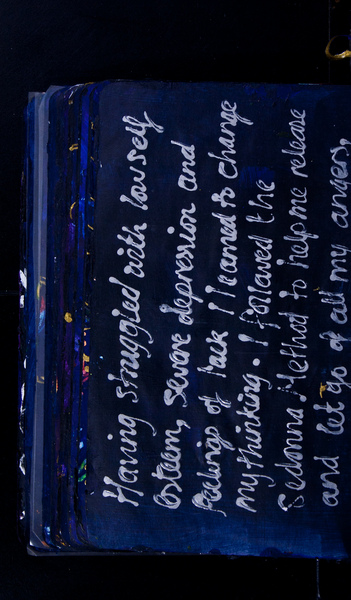 Having struggled with lowself
Esteem, severe depression and
feelings of lack I learned to change
my thinking. I followed the
Sedonna Method to help me release
and let go of all my angers,